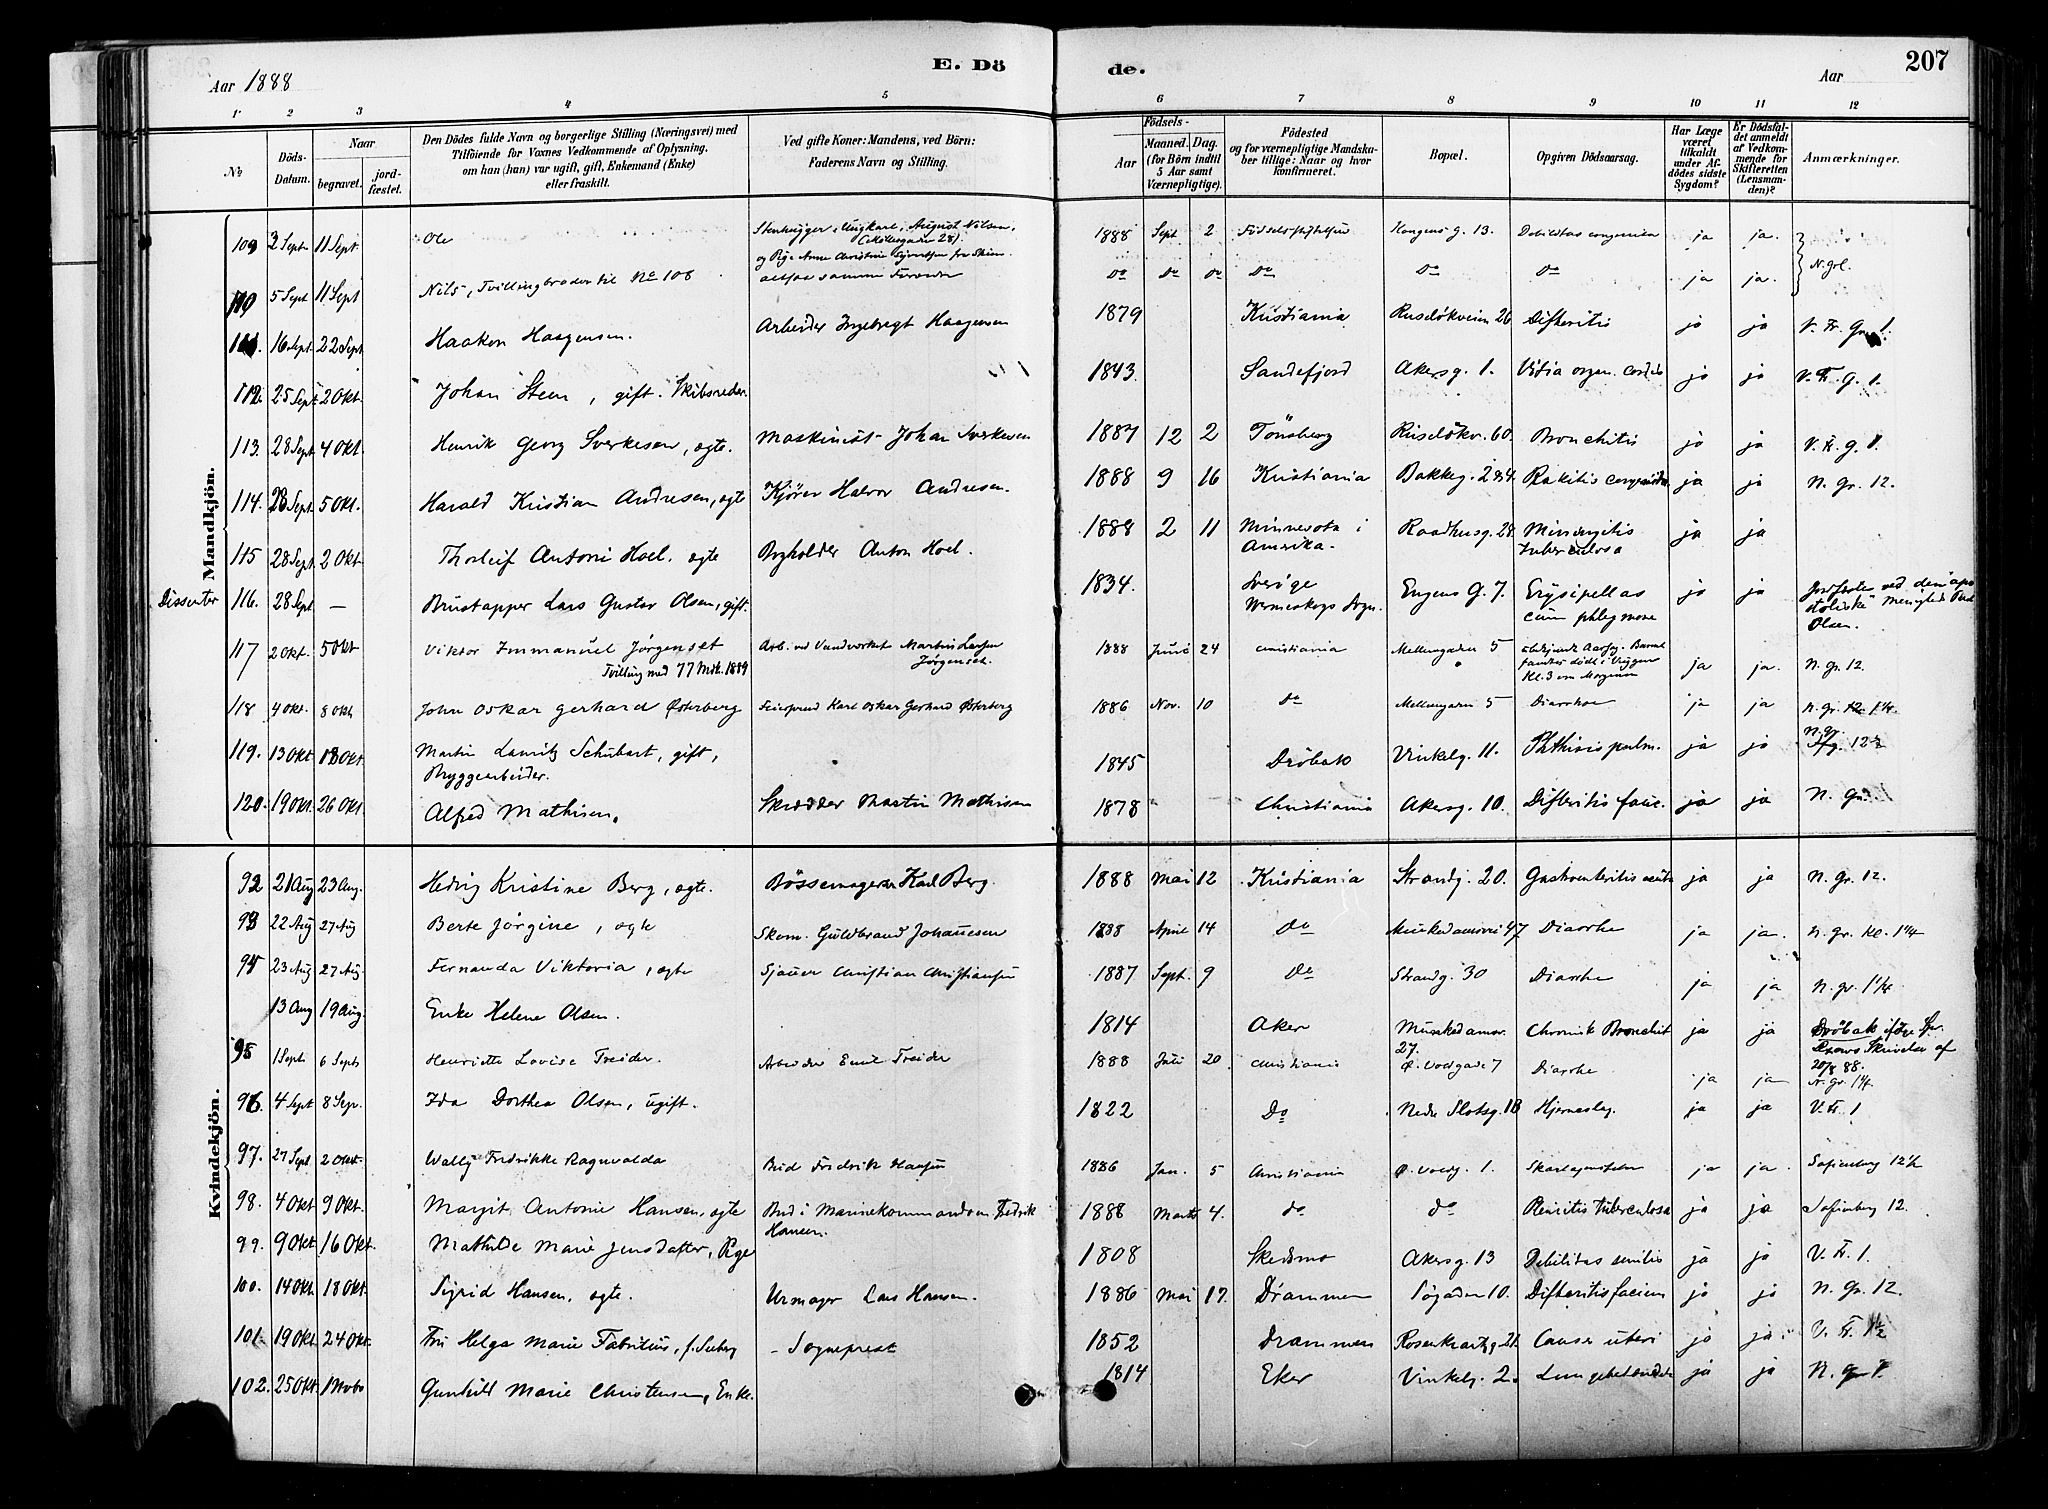 Aar 1888
E. Dö
de.
Aar
207
1 2 3 4 5 6 7 8 9 10 11 12
No
Döds-Datum.
Naar
begravet.
jord-fæstet.
Den Dödes fulde Navn og borgerlige Stilling (Næringsvei) med
Tilföiende for Voxnes Vedkommende af Oplysning,
om han (hun) var ugift, gift, Enkemand (Enke)
eller fraskilt.
Ved gifte Koner: Mandens, ved Börn:
Faderens Navn og Stilling.
Födsels-
Aar
Maaned. Dag.
(for Börn indtil
5 Aar samt
Værnepligtige).
Födested
og for værnepligtige Mandska-
ber tillige: Naar og hvor
konfirmeret.
Bopæl.
Opgiven Dödsaarsag.
Har Læge
været
tilkaldt
under Af-
dödes sidste
Sygdom?
Er Dödsfal-
det anmeldt
af Vedkom-
mende for
Skifteretten
(Lensman-
den)?
Anmærkninger.
Mandkjön.
109 2 Sept 11 Sept Ole Stenhugger, Ungkarl, August Nilsen, 1888 Sept 2 Kongens g. 13. Debilitas congenita ja ja.
og Pige Anne Christine
110 5 Sept 11 Sept Nils, Tvillingbroder til No 108 altsaa samme Forældre Do Do Do Do Do Do ja ja. N. grl.
111. 16 Sept. 22 Sept Haakon Haagensen. Arbeider Ingebregt Haagensen 1879 Kristiania Ruseløkveien 26 Difteritis ja ja V. Fr. Gr 1.
112. 25 Sept 2 Okt. Johan Steen, gift. Skibsreder 1843. Sandefjord Akersg. 1. Vitia organ. cordis ja ja V. Fr. g. 1.
113. 28 Sept. 4 Okt. Henrik Georg Sverkesen, ægte. Maskinist Johan Sverkesen 1887 12 2 Tönsberg Ruseløkv. 60. Bronchitis ja ja V. Fr. g. 1.
114. 28 Sept. 5 Okt. Harald Kristian Andresen, ægte Kjører Halvor Andresen. 1888 9 16 Kristiania Bakkeg. 2 & 4. Rakitis congenita ja ja N. Gr. 12.
115 28 Sept 2 Okt. Thorleif Antoni Hoel. ægte Bogholder Anton Hoel. 1888 2 11 Minnesota i Raadhusg. 28. Miningitis ja ja
Amerika. tuberculosa
Dissenter 116. 28 Sept — Brustapper Lars Gustav Olsen, gift. 1834. Sverige Engens G. 7. Erysipellas ja ja Jordfæstet ved den "apo
Werneskogs Sogn. cum phlegmone stoliske" Menigheds
Olsen.
117 2 Okt. 5 Okt Viktor Immanuel Jørgenset Arb. ved Vandverket Martin Larsen 1888 Juni 24 Christiania Mellemgaden 5 Barnet
Tvilling med 77 Mdk. 1889 Jørgenset. fandtes dödt i Vuggen ja ja. N. gr. 12
Kl. 3 om Morgenen
118 4 Okt. 8 Okt John Oskar Gerhard Østerberg Karl Oskar Gerhard Østerberg 1886 Nov. 10 Do Mellemgaden 5 Diarrhoe ja ja N. gr. 12 1¼.
119. 13 Okt 18 Okt Martin Lauritz Schubart, gift, 1845 Dröbak Vinkelg. 11. Phthisis pulm. ja ja N. gr. 12½
Bryggearbeider.
120. 19 Okt. 26 Okt Alfred Mathisen. Skrædder Martin Mathisen 1878 Christiania Akersg. 10. Difteritis fauc. ja ja N. Gr. 1
Kvindekjön.
92 21 Aug 23 Aug. Hedvig Kristine Berg, ægte. Bössemager Karl Berg. 1888 Mai 12 Kristiania Strandg. 20. Gastroenteritis acuta ja ja N. gr. 12.
93 22 Aug 27 Aug Berte Jörgine, ægte Skom. Guldbrand Johannesen 1888 April 14 Do Munkedamsvei 47 Diarrhe ja ja. N. gr. Kl. 1¼
94 23 Aug 27 Aug. Fernanda Viktoria, ægte Sjauer Christian Christiansen 1887 Sept. 9 Do Strandg. 30 Diarrhe ja ja N. gr. 1¼
13 Aug 19 Aug. Enke Helene Olsen. 1814 Aker Munkedamsv. 27. Chronisk Bronchit ja ja Dröbak ifølge Spr.
Skrivelse af
20/8 88.
95 1 Sept 6 Sept Henriette Lovise Treider. Arbeider Emil Treider 1888 Juli 20 Christiania Ø. Voldgade 7 Diarrhe ja ja N. gr. 1¼.
96. 4 Sept 8 Sep. Ida Dorthea Olsen, ugift. 1822 Do Nedre Slotsg. 18 Hjerneslag. ja ja V. Fr. 1
97. 27 Sept 2 Okt Wally Fredrikke Ragnvalda Bud Fredrik Hansen 1886 Jan. 5 Christiania Ø. Voldg. 1. Skarlagensfeber ja ja. Sofienberg 12½
98. 4 Okt 9 Okt. Margit Antonie Hansen, ægte Bud i Marinekommandoen Fredrik 1888 Marts 4. do do tuberculosa ja ja Sofienberg 12.
Hansen.
99. 9 Okt 16 Okt. Mathilde Marie Jensdatter, Pige 1808 Skedsmo Akersg. 13 Debilitas senilis ja ja V. Fr. 1.
100. 14 Okt. 18 Okt. Sigrid Hansen, ægte. Urmager Lars Hansen. 1886 Mai 17. Drammen Søgaden 10. Difteritis facium ja ja N. Gr. 12.
101. 19 Okt. 24 Okt. Fru Helga Marie Fabritius, f. Seeberg - Sogneprest 1852 Drammen Rosenkrantzg. 21. Cancer uteri ja ja V. Fr. 1½
102. 25 Okt. 1 Novb Gunhild Marie Christensen, Enke. 1814 Eker Vinkelg. 2. Lungebetændelse ja ja N. gr 1.